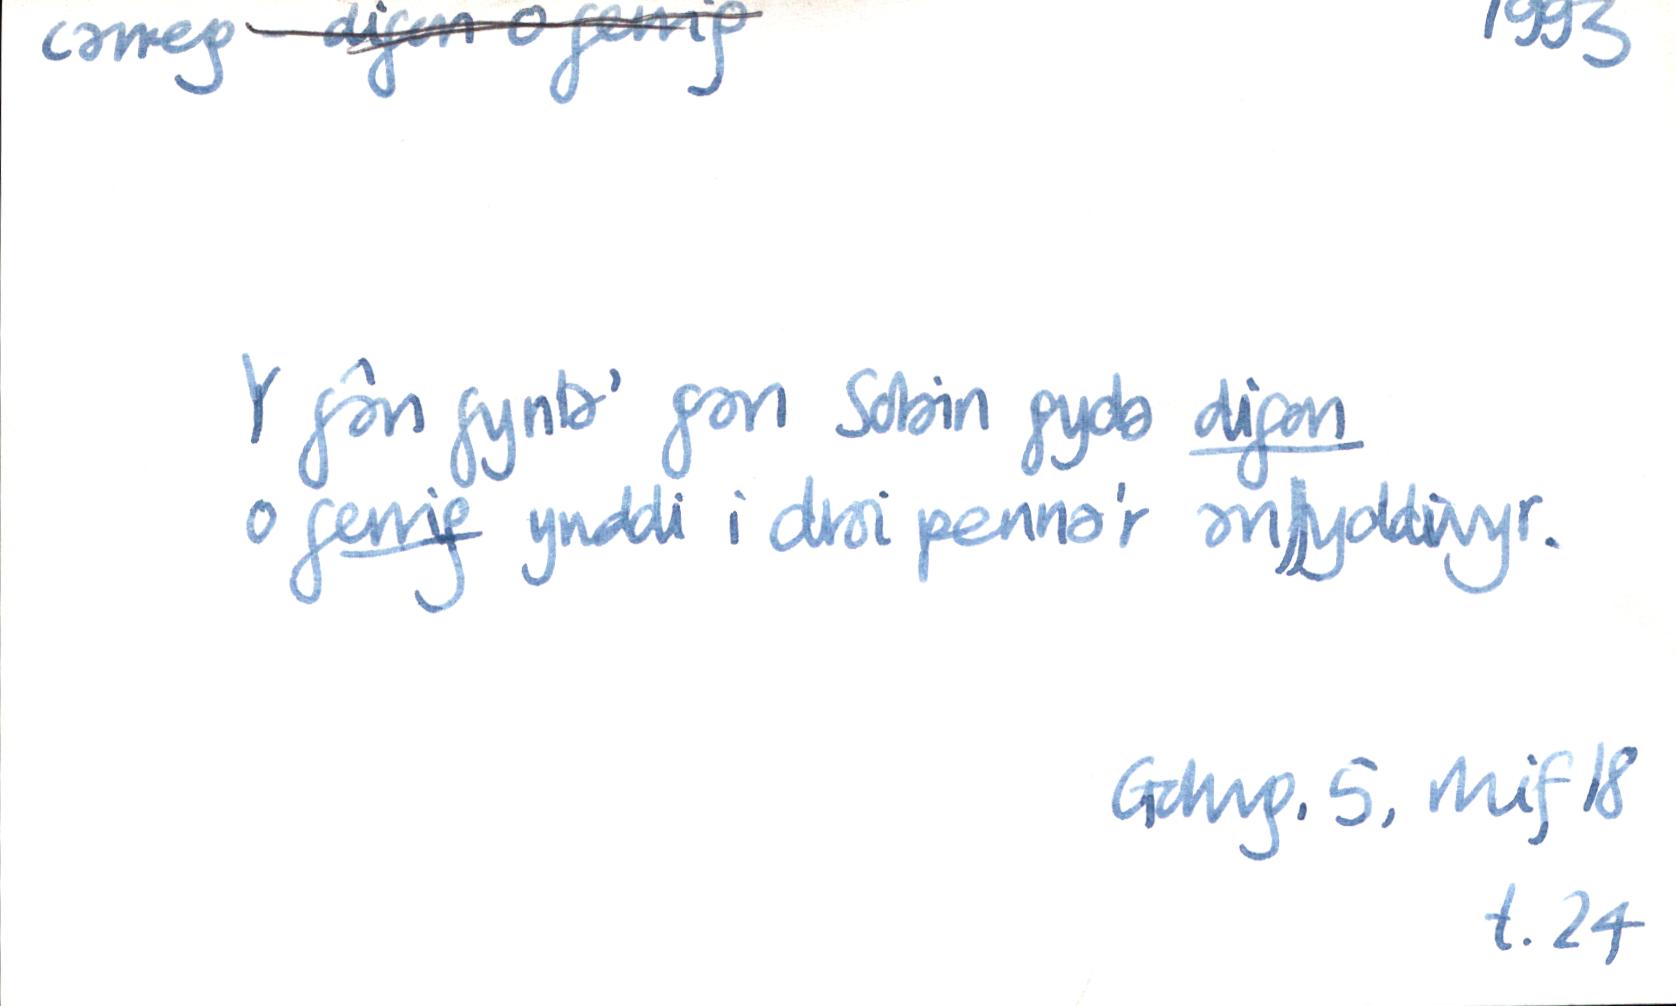 carreg - digon o gerrig 1993
Y gân gynta' gan Sobin gyda digon
o gerrig ynddi i droi penna'r anffyddiwyr.
Golwg. 5, rhif 18
t. 24